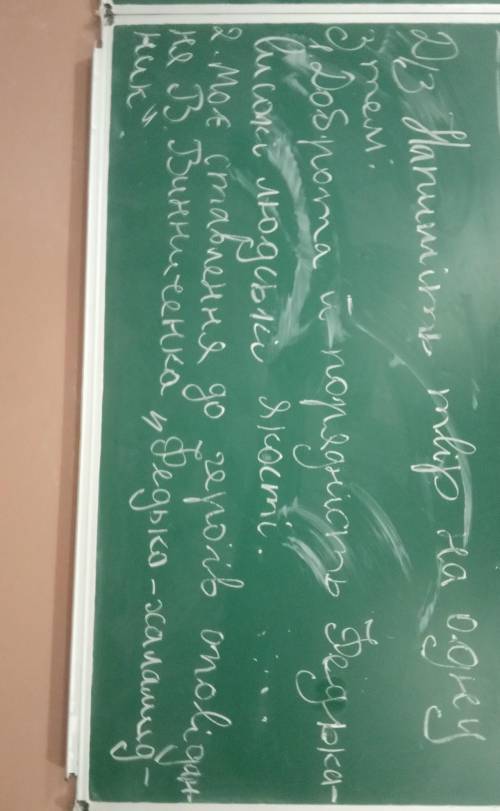 Д/З Напишіть твір на одну
З тем:
1. Доброта й порядність Федька-
високі людські якості.
2. Моє ставлення до героїв оповідан-
ня В. Винниченка „Федько-халамид-
ник"